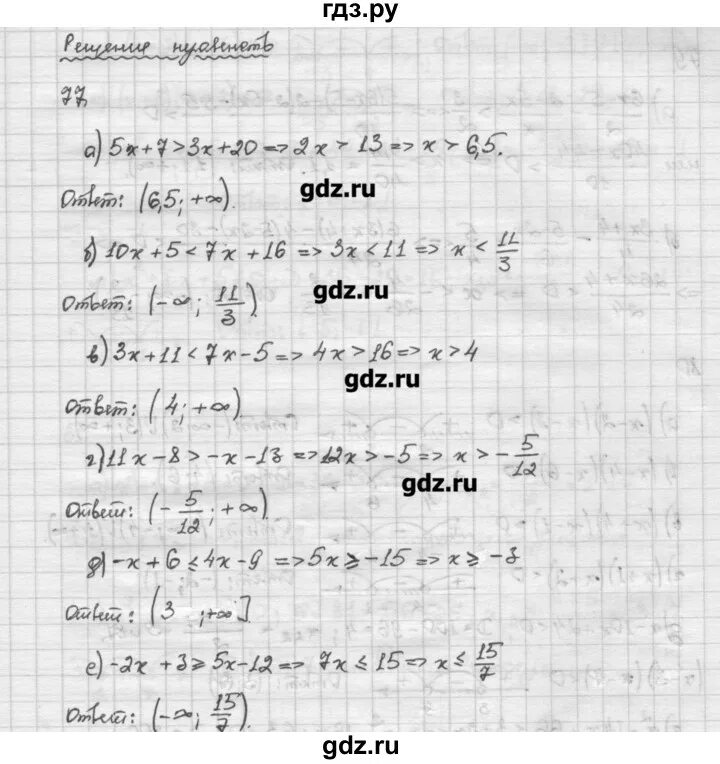 гдз.ру
Решение неравенств
77.
а) 5x+7>3x+20 => 2x > 13 => x > 6,5.
gdz.ru
Ответ: (6,5; +∞).
б) 10x+5 < 7x+16 => 3x < 11 => x < 11/3
gdz.ru
Ответ: (-∞; 11/3).
в) 3x+11 < 7x-5 => 4x > 16 => x > 4
gdz.ru
Ответ: (4; +∞).
г) 11x-8 > -x-13 => 12x > -5 => x > -5/12
gdz.ru
Ответ: (-5/12; +∞)
д) -x+6 ≤ 4x-9 => 5x ≥ -15 => x ≥ -3
Ответ: [3 ; +∞]
е) -2x+3 ≥ 5x-12 => 7x ≤ 15 => x ≤ 15/7
Ответ: (-∞; 15/7).
gdz.ru